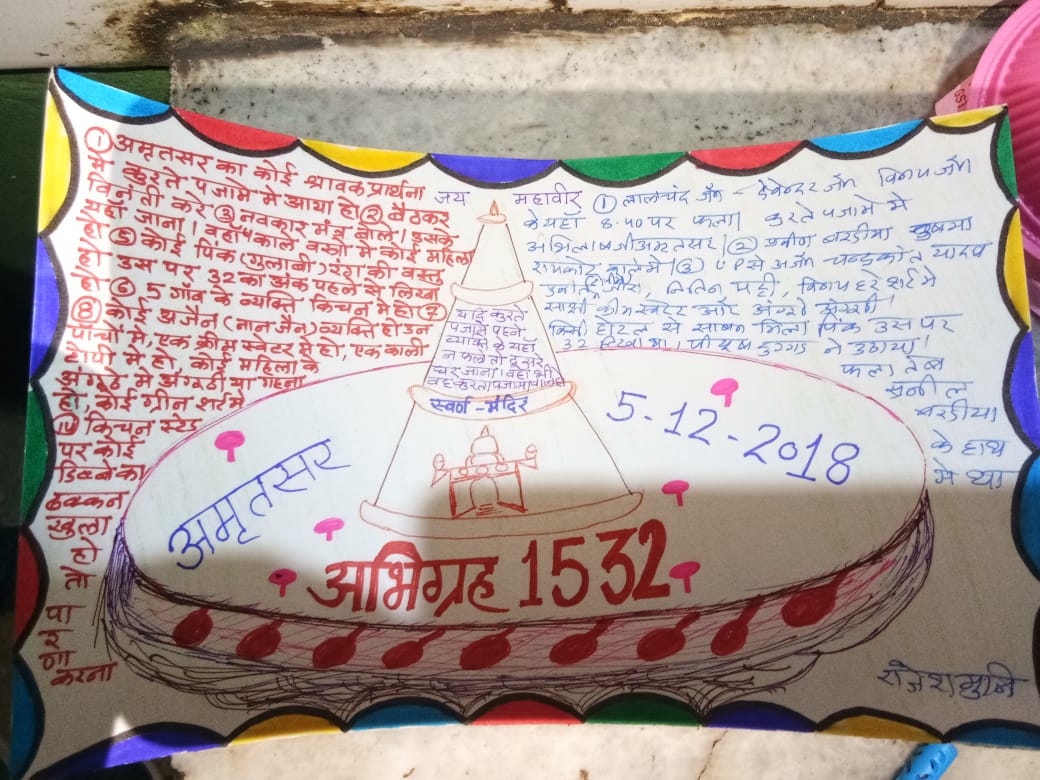 ① अमृतसर का कोई श्रावक प्रार्थना
मे कुरते पजामे मे आया हो ② बैठकर
विनंती करे ③ नवकार मंत्र बोले। इसके
यहाँ जाना। वहाँ ५ काले वस्त्रो मे कोई महिला
हो ⑤ कोई पिंक (गुलाबी) रंग की वस्तु
हो उस पर 32 का अंक पहले से लिखा
हो ⑥ 5 गाँव के व्यक्ति किचन मे हो ⑦
⑧ कोई अजैन (नान जैन) व्यक्ति हो उन
पाँचो मे, एक क्रीम स्वेटर मे हो, एक काली
टोपी मे हो, कोई महिला के
अंगूठे मे अंगूठी या गहना
हो कोई ग्रीन शर्ट मे
किचन स्टेंड
पर कोई
डिब्बे का
ढक्कन
खुला
हो
तो
पा
र
णा
करना
जय महावीर
यदि कुरते
पजामे पहने
व्यक्ति के यहाँ
न फले तो दूसरे
घर जाना। वहाँ भी
वह कुरता पजामा वाला
स्वर्ण - मंदिर
① लालचंद जैन - देवेन्दर जैन विनय जैन
के यहाँ 8.40 पर फला। कुरते पजामे मे
अभिलाष जी अमृतसर। ② प्रवीण बरडीया सुषमा
रामकोट काले मे ③ UP से अजैन चन्द्रकांत यादव
नितिन विनय हरे शर्ट मे
साक्षी क्रीम स्वेटर और अंगूठी
किसी होटल से साबन मिला पिंक उस पर
32 लिखा था। पीयूष दुग्गड ने उठाया।
फला तब
सुनील
बरडीया
के हाथ
मे था
अमृतसर
5-12-2018
अभिग्रह 1532
राजेशमुनि